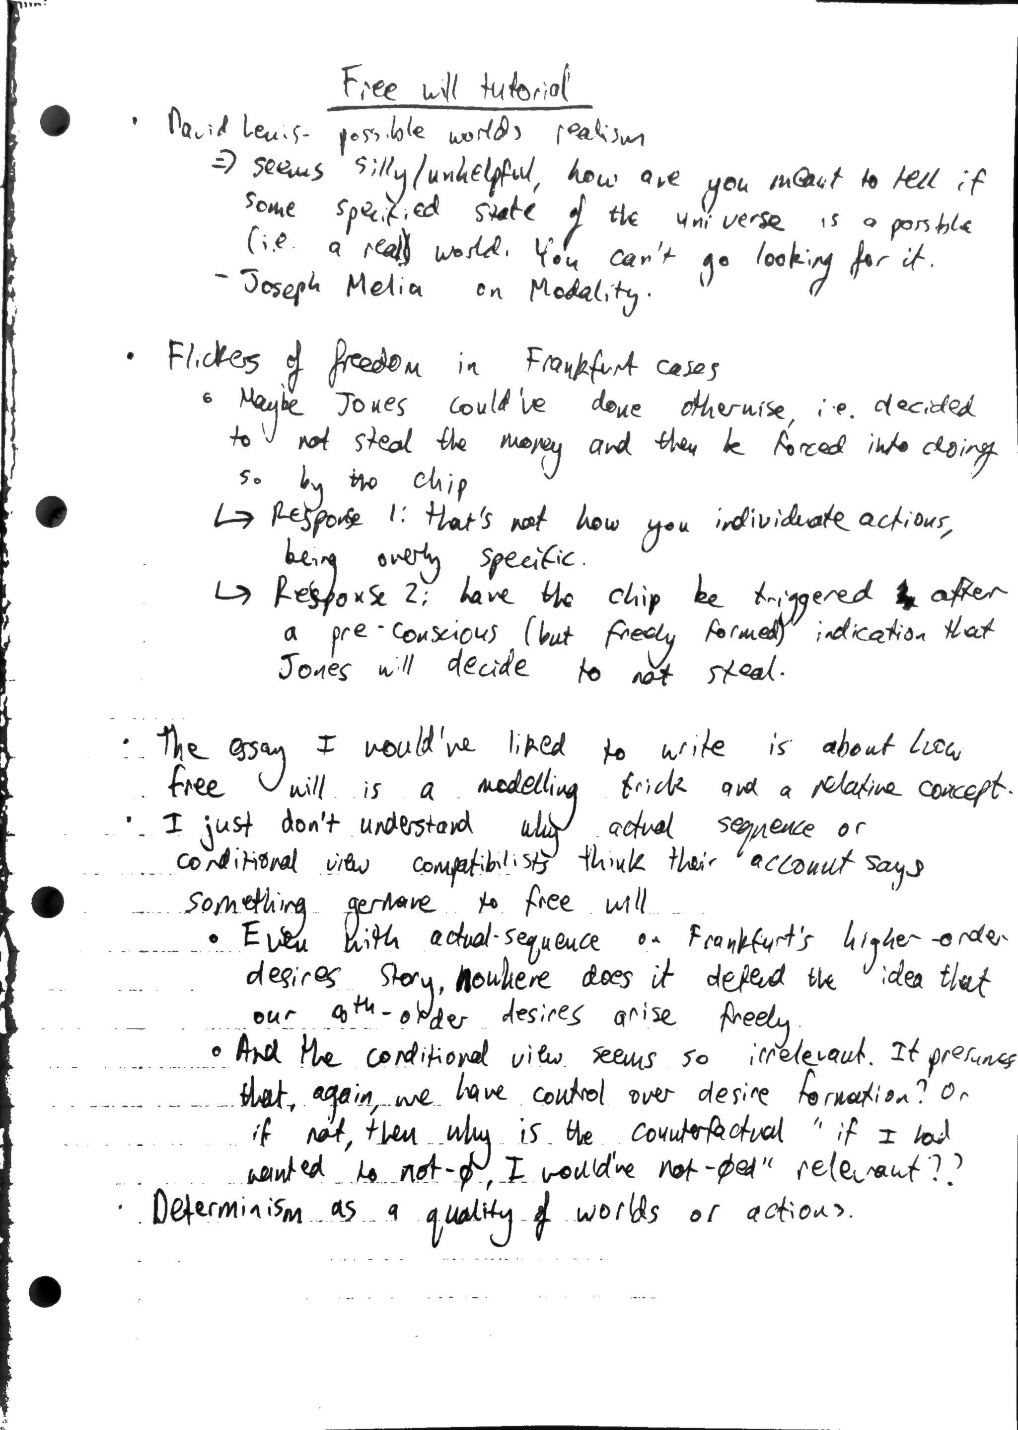 Free will tutorial
· David Lewis - possible worlds realism
⇒ seems silly/unhelpful, how are you meant to tell if
some specified state of the universe is a possible
(i.e. a real) world. You can't go looking for it.
- Joseph Melia on Modality.
· Flickers of freedom in Frankfurt cases
∘ Maybe Jones could've done otherwise, i.e. decided
to not steal the money and then be forced into doing
so by the chip
↳ Response 1: that's not how you individuate actions,
being overly specific.
↳ Response 2: have the chip be triggered after
a pre-conscious (but freely formed) indication that
Jones will decide to not steal.
· The essay I would've liked to write is about how
free will is a modelling trick and a relative concept.
· I just don't understand why actual sequence or
conditional view compatibilists think their account says
something germane to free will
∘ Even with actual-sequence or Frankfurt's higher-order
desires story, nowhere does it defend the idea that
our ∞th-order desires arise freely.
∘ And the conditional view seems so irrelevant. It presumes
that, again, we have control over desire formation? Or
if not, then why is the counterfactual "if I had
wanted to not-ϕ, I would've not-ϕed" relevant??
· Determinism as a quality of worlds or actions.